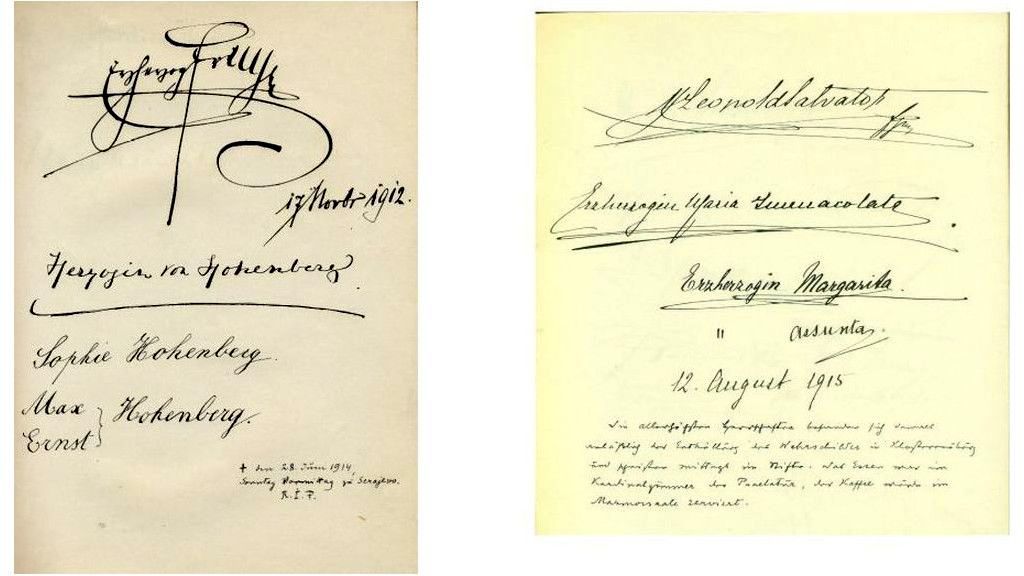 Erzherzog Franz
17 Novbr 1912.
Herzogin von Hohenberg
Sophie Hohenberg.
Max
Ernst } Hohenberg.
+ den 28. Juni 1914,
Sonntag Vormittag zu Serajewo.
R.I.P.
Leopold Salvator
Erzherzogin Maria Immacolata
Erzherzogin Margarita.
" Assunta.
12. August 1915
Die allerhöchsten Herrschaften befanden sich damals
anläßlich der Enthüllung des Wehrschildes in Klosterneuburg
und speisten mittags im Stifte. Das Essen war im
Kardinalzimmer der Praelatur, der Kaffee wurde im
Marmorsaale serviert.